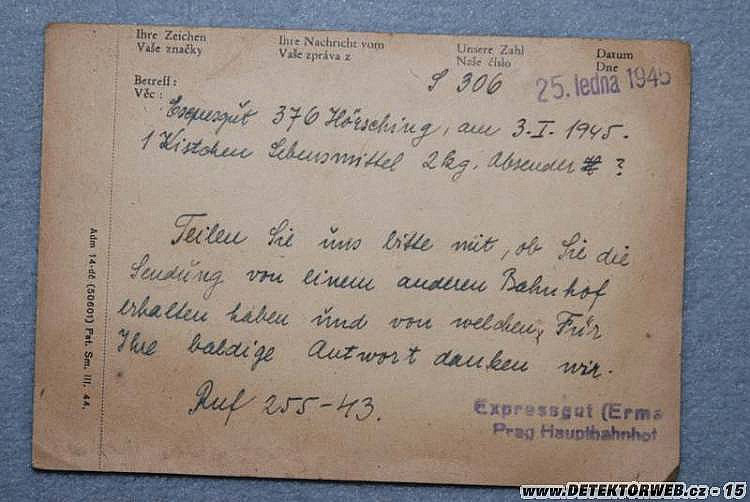 Ihre Zeichen Ihre Nachricht vom Unsere Zahl Datum
Vaše značky Vaše zpráva z Naše číslo Dne
S 306 25. ledna 1945
Betreff:
Věc:
Expresgut 376 Hörsching, am 3.I.1945.
1 Kistchen Lebensmittel 2kg. Absender ?
Teilen Sie uns bitte mit, ob Sie die
Sendung von einem anderen Bahnhof
erhalten haben und von welchen. Für
Ihre baldige Antwort danken wir.
Ruf 255-43.
Expressgut (Erma
Prag Hauptbahnhof
Adm 14-dč (50601) Pat. Sm. III. 44.
www.DETEKTORWEB.cz - 15